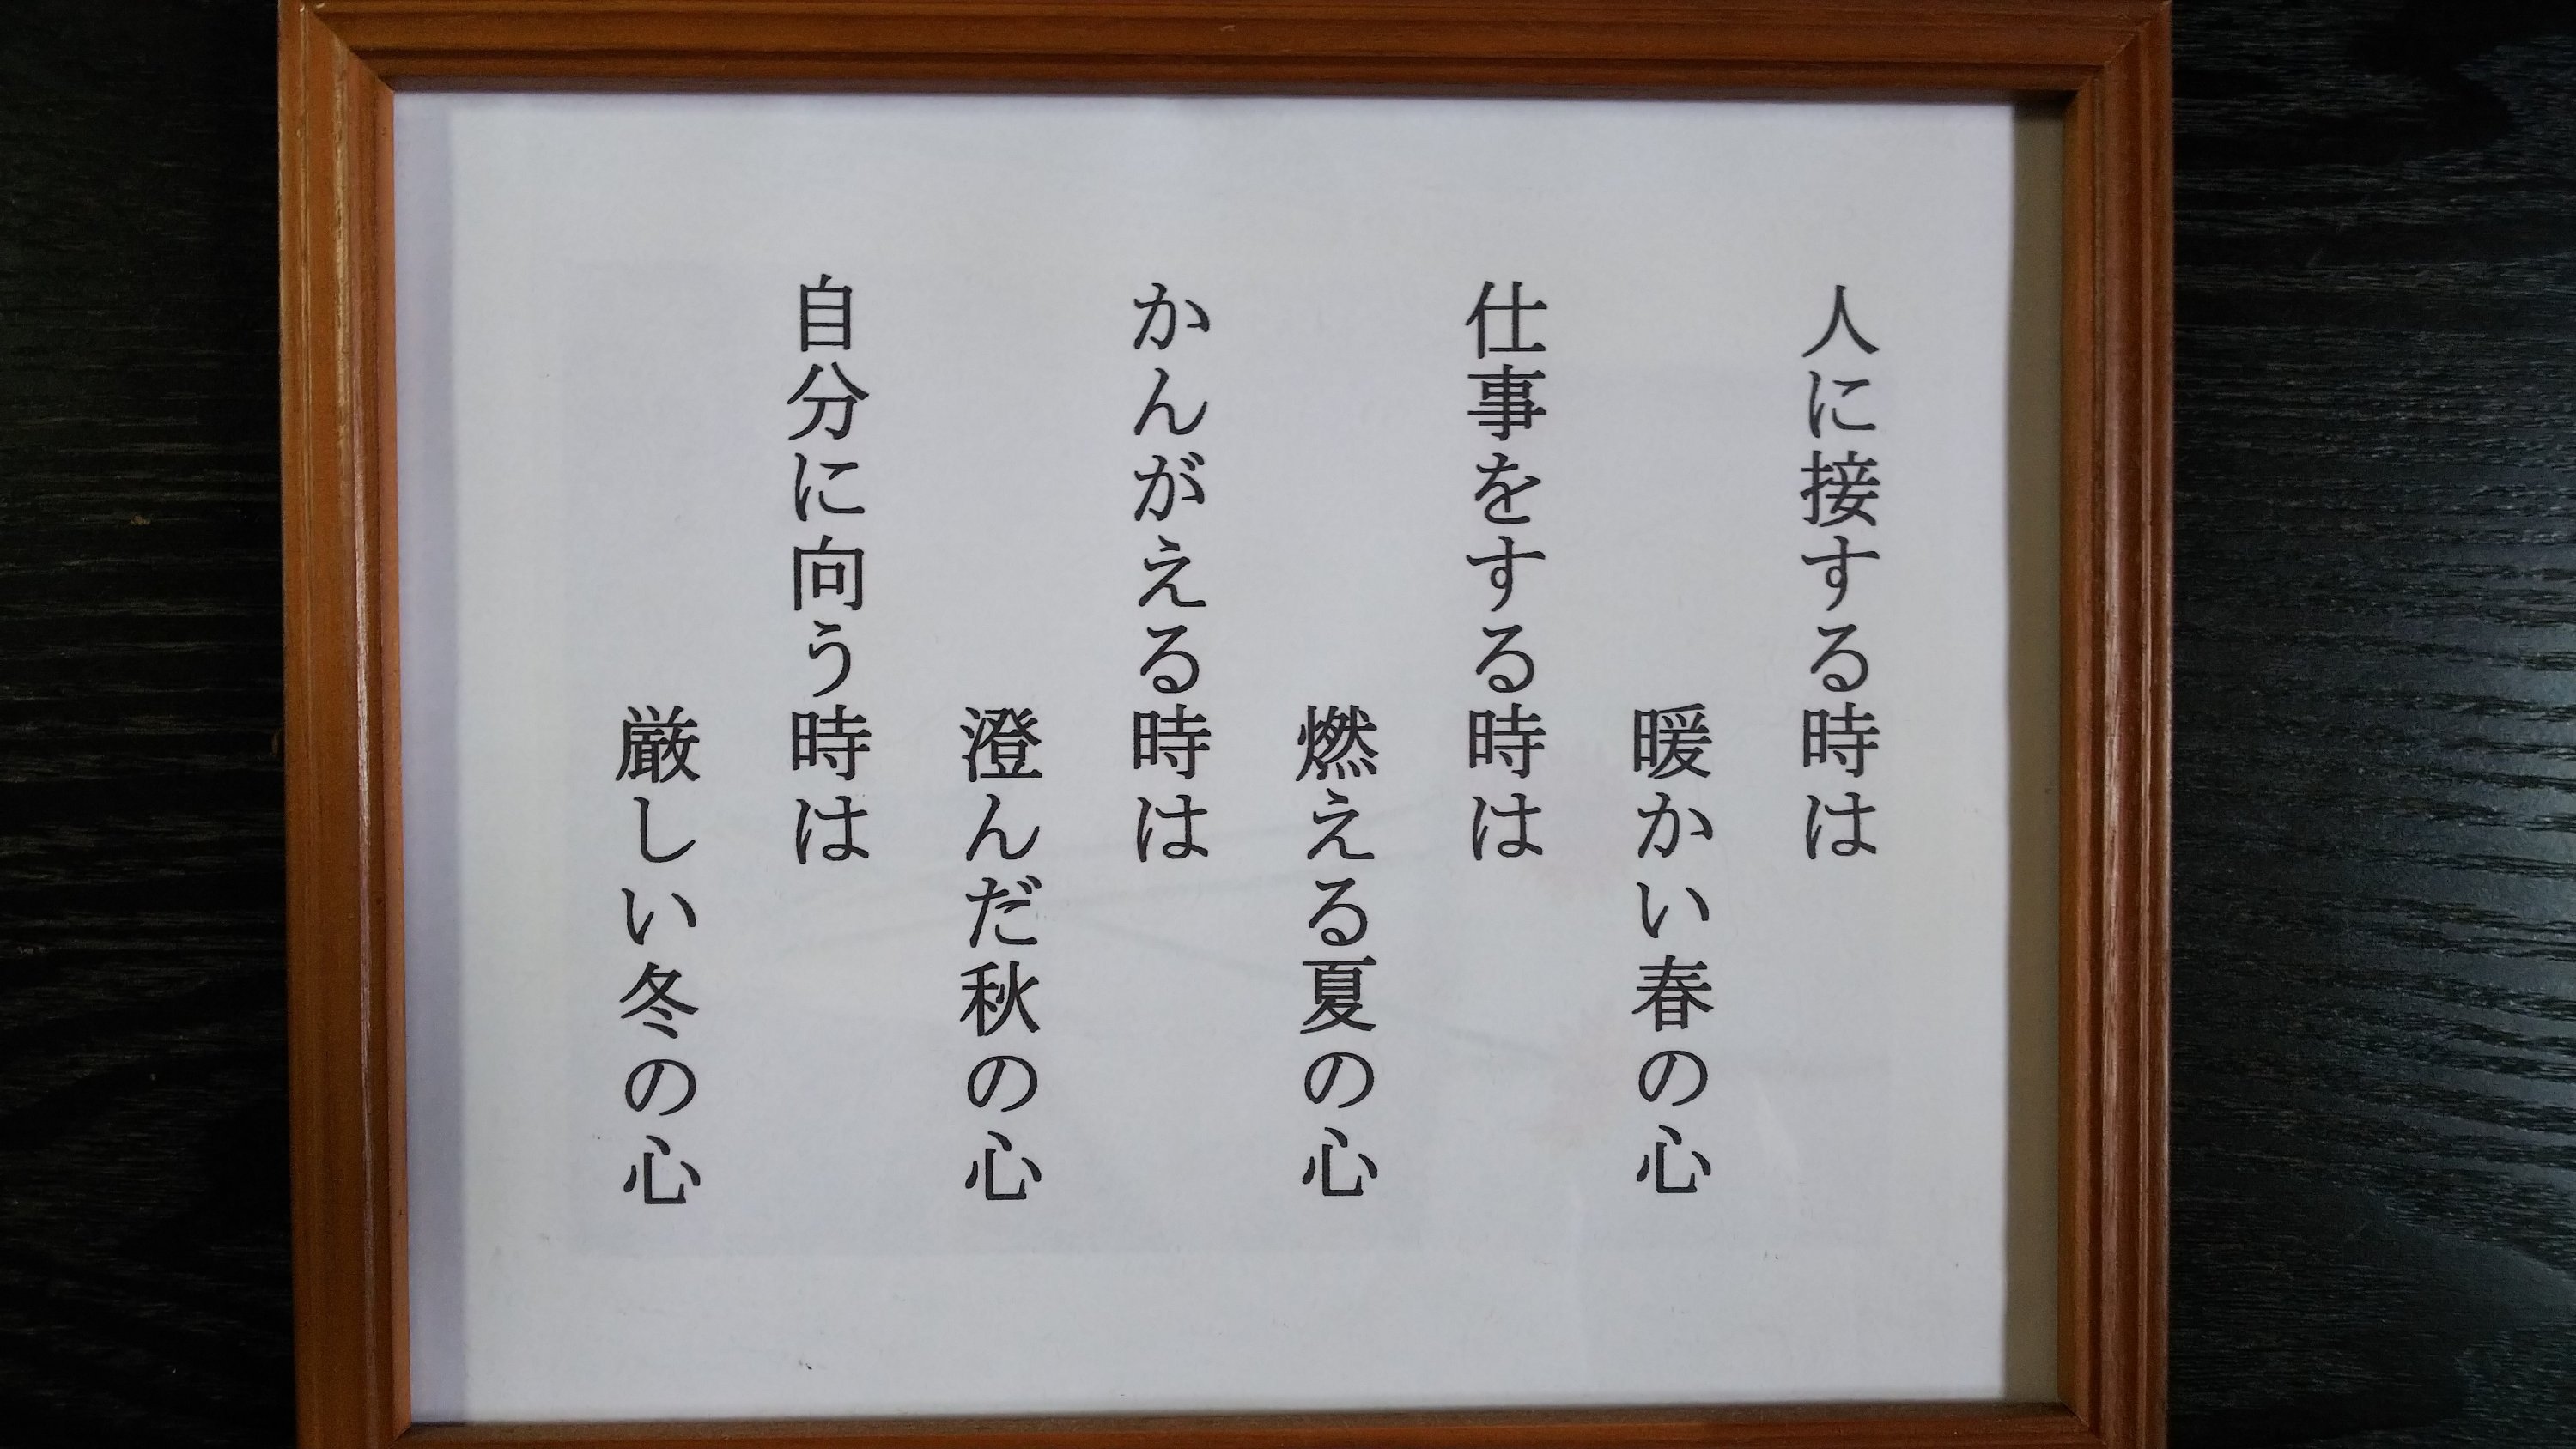 人に接する時は
暖かい春の心
仕事をする時は
燃える夏の心
かんがえる時は
澄んだ秋の心
自分に向う時は
厳しい冬の心